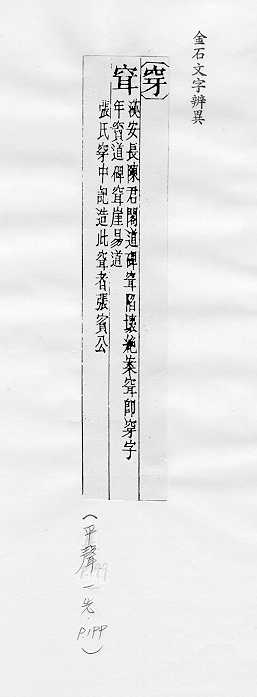 金石文字辨異
穿
穿
漢安長陳君閣道碑穿陷壞絶案穿即穿字
年賨道碑穿崖易道
張氏穿中記造此穿者張賓公
(平聲一先·P.199)